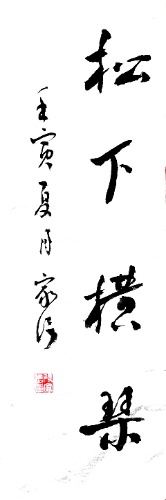 松下横琴
壬寅夏月家俊